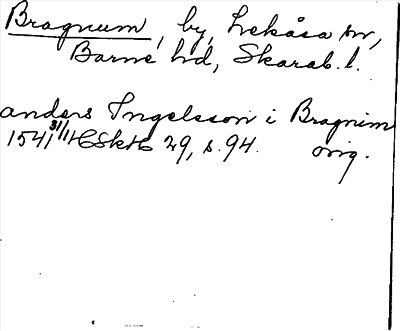 Bragnum, by, Lekåsa sn,
Barne hd, Skarab. l.
anders Ingelsson i Bragnim
1541 31/1 HSkH 29, s. 94. orig.